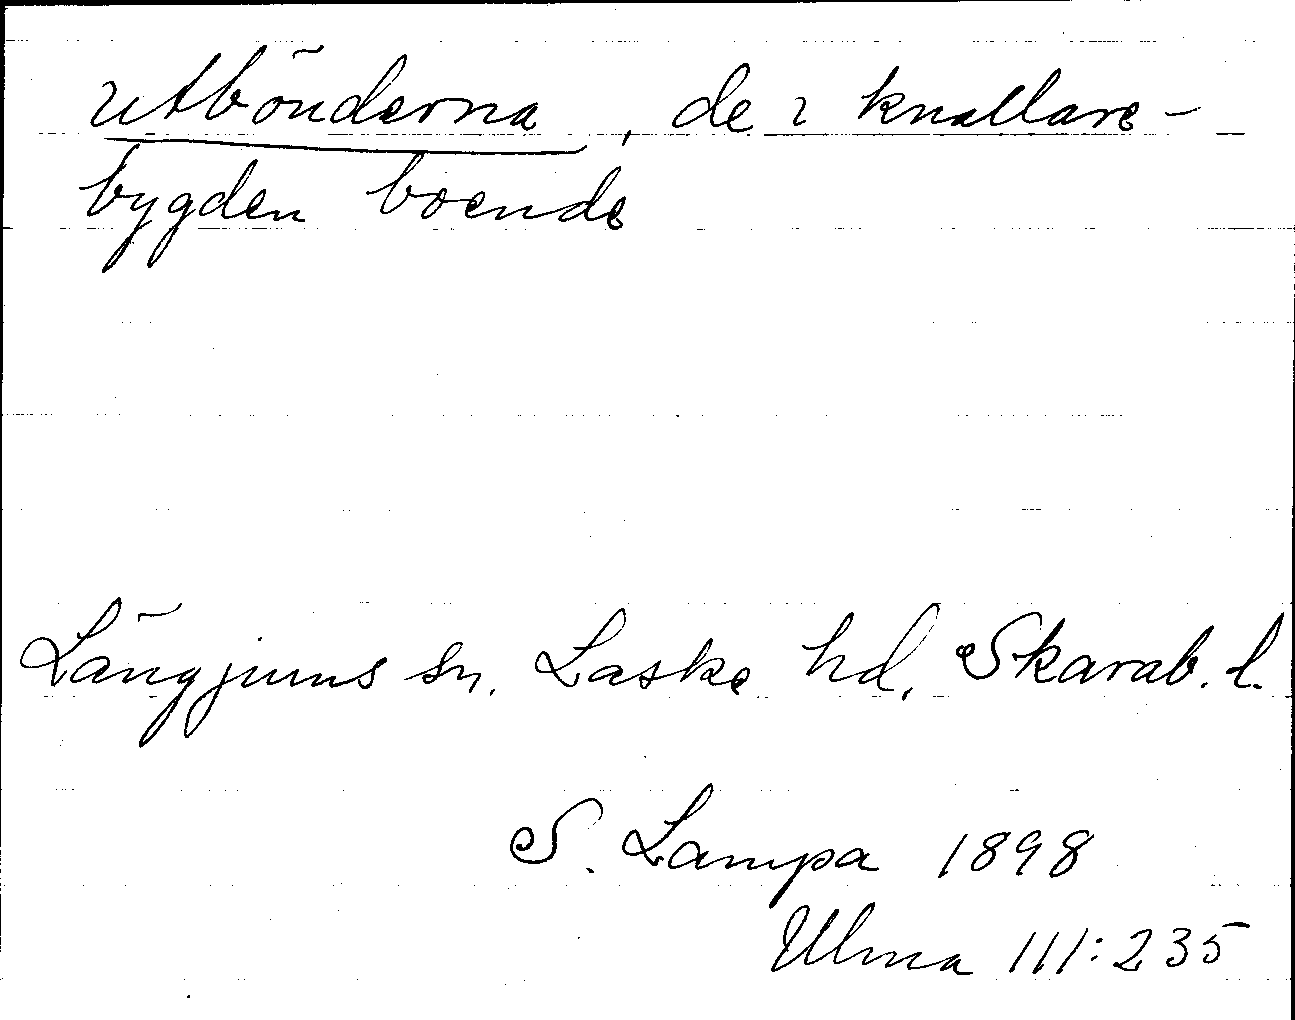 utbönderna, de i knallare-
bygden boende
Längjums sn. Laske hd, Skarab. l.
S. Lampa 1898
Ulma 111:235